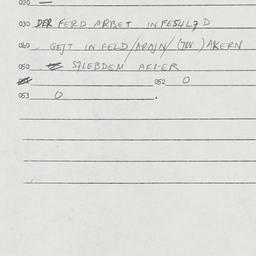 020 —
030 DER FERD ARBET IN FESUL7 D
040 GEJT IN FELD/ARAJN/(ZUR) AKERN
050 S7LEBDEM AKKER
052 0
053 0 .